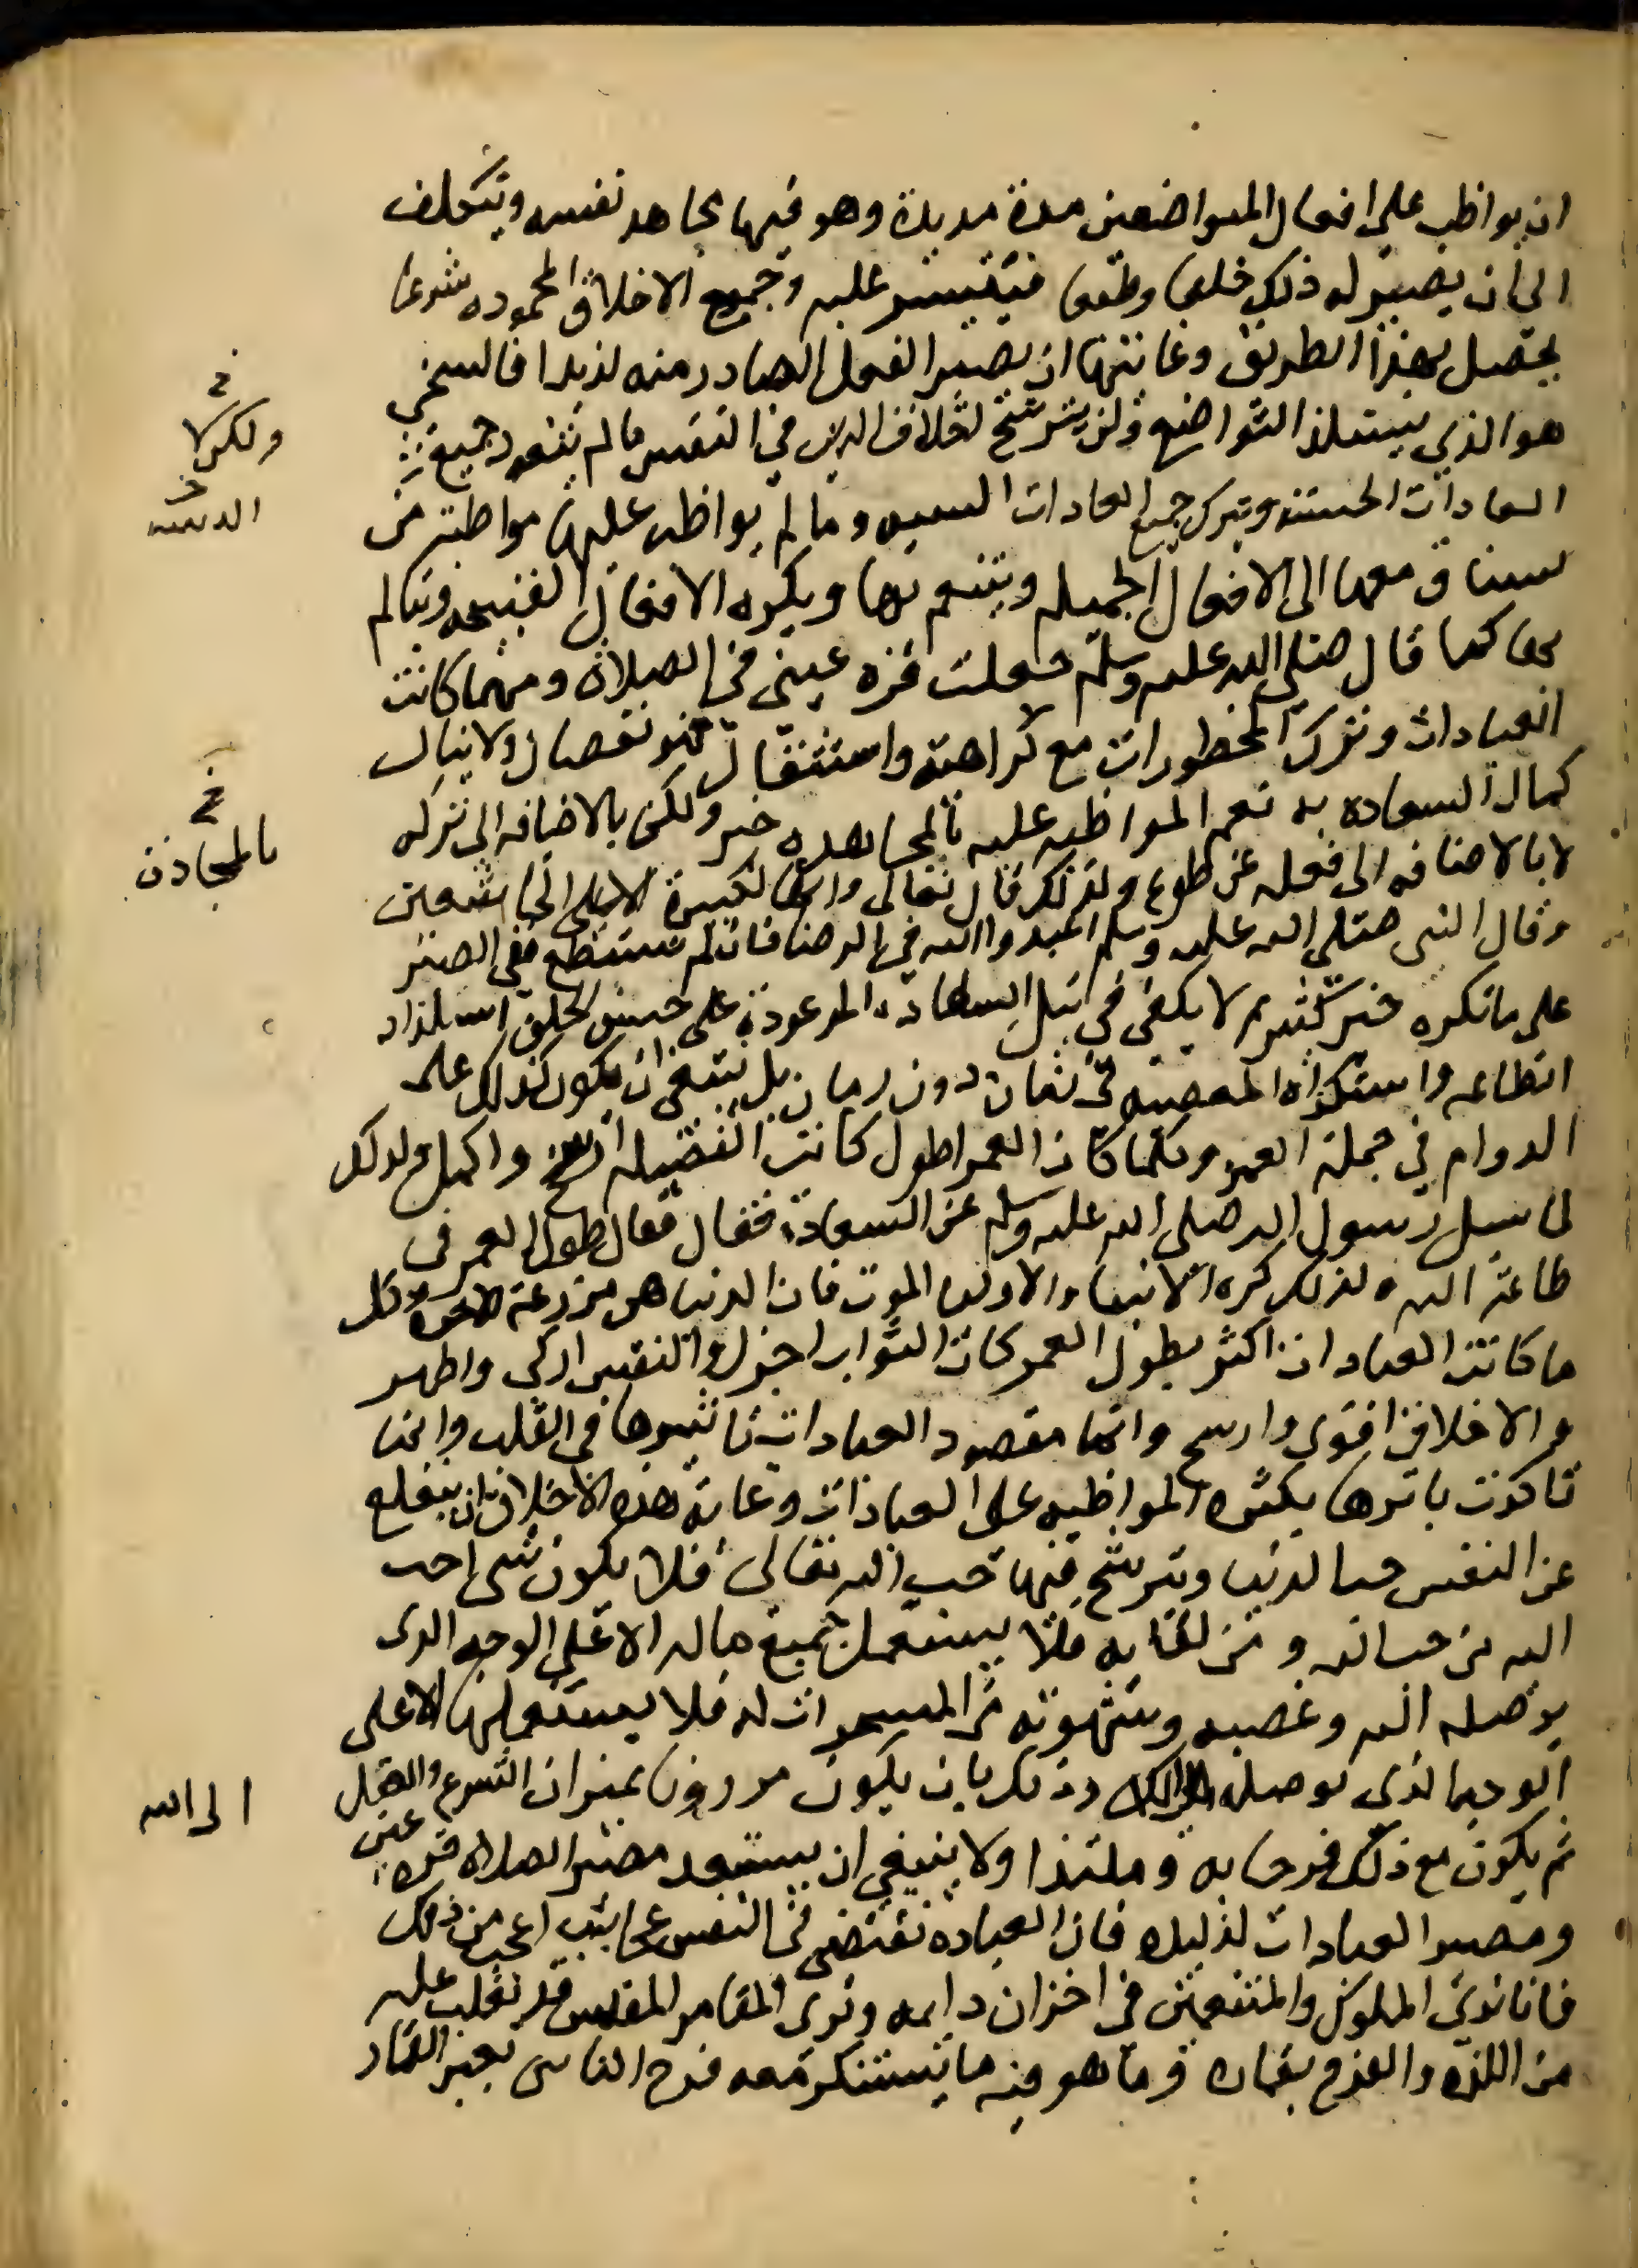 ان يواظب على افعال المتواضعين مدة مديدة وهو فيها مجاهد نفسه ويتكلف
الى ان يصير له ذلك خلقا وطبعا فيتيسر عليه وجميع الاخلاق المحموده شرعا
يحصل بهذا الطريق وغايتها ان يصير الفعل الصادر منه لذيذا فالسخي
هو الذي يستلذ التواضع ولن يترسخ الاخلاق الدين في النفس ما لم يتعود جميع
العادات الحسنه ويترك جميع العادات السيه وما لم يواظب عليها مواظبة من
يشتاق معها الى الافعال الجميله ويتنعم بها ويكره الافعال القبيحه ويتالم
بها كما قال صلى الله عليه وسلم جعلت قره عيني في الصلاة ومهما كانت
العبادات وترك المحظورات مع كراهته واستثقال فهو نقصان ولا ينال
كمال السعاده به نعم المواظبه عليه بالمجاهده خير ولكن بالاضافه الى تركه
لا بالاضافه الى فعله عن طوع ولذلك قال تعالى وانها لكبيرة الا على الخاشعين
وقال النبي صلى الله عليه وسلم اعبدوا الله في الرضا فان لم تستطع ففي الصبر
على ما تكره خير كثير ثم لا يكفي في نيل السعادة الموعودة على حسن الخلق استلذاذ
الطاعه واستكراه المعصيه في زمان دون زمان بل ينبغي ان يكون كذلك على
الدوام في جملة العمر وكلما كان العمر اطول كانت الفضيله ارسخ واكمل ولذلك
لما سيل رسول الله صلى الله عليه وسلم عن السعادة فقال فقال طول العمر في
طاعة الله ولذلك كره الانبيا والاوليا الموت فان الدنيا هي مزرعة الاخرة وكل
ما كانت العبادات اكثر بطول العمر كان الثواب اجزل والنفس ازكى واطهر
والاخلاق اقوى وارسخ وانما مقصود العبادات تاثيرها في القلب وانما
تاكدت باثرها بكثره المواظبه على العبادات وغاية هذه الاخلاق ان ينقلع
عن النفس حب الدنيا ويترسخ فيها حب الله تعالى فلا يكون شي احب
اليه من حب الله ومن لقايه فلا يستعمل جميع ماله الا على الوجه الذي
يوصله اليه وغضبه وشهوته من المسخرات له فلا يستعملها الا على
الوجه الذي يوصله وذلك بان يكون موزون بميزان الشرع والعقل
ثم يكون مع ذلك فرحا به وملتذا ولا ينبغي ان يستبعد مصير الصلاه قره عين
ومصير العبادات لذيذه فان العباده تقتضي في النفس عجايب اعجب من ذلك
فانا نرى الملوك والمتنعمين في احزان دايمه ونرى المقامر المفلس قد تغلب عليه
من اللذه والفرح بقماره وما هو فيه ما يستنكر معه فرح الناس بغير القمار
خ
ولكن لا
خ
الدينيه
خ
بالمجاذن
الى الله